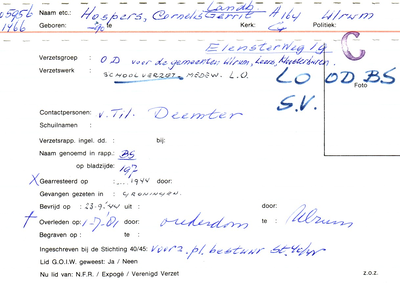 05956 Naam etc.: Hospers, Cornelis Gerrit Landb A 164 Ulrum
1966 Geboren: Kerk: G Politiek:
Elensterweg 19
C
Verzetsgroep : OD voor de gemeenten Ulrum, Leens, Kloosterburen.
Verzetswerk : SCHOOLVERZET. MEDEW. L.O. LO OD. BS
S.V. Foto
Contactpersonen: v. Til. Deemter
Schuilnaam :
Verzetsrapp. ingel. dd. : bij:
Naam genoemd in rapp.: BS
op bladzijde: 197
X Gearresteerd op :..... 1944 door:
Gevangen gezeten in : GRONINGEN.
Bevrijd op : 23.9.'44 uit : door:
† Overleden op : 1-7-'81 door: ouderdom te : Ulrum
Begraven op : te :
Ingeschreven bij de Stichting 40/45: voorz. pl. bestuur St. 40/45
Lid G.O.I.W. geweest: Ja / Neen
Nu lid van: N.F.R. / Expogé / Verenigd Verzet z.o.z.